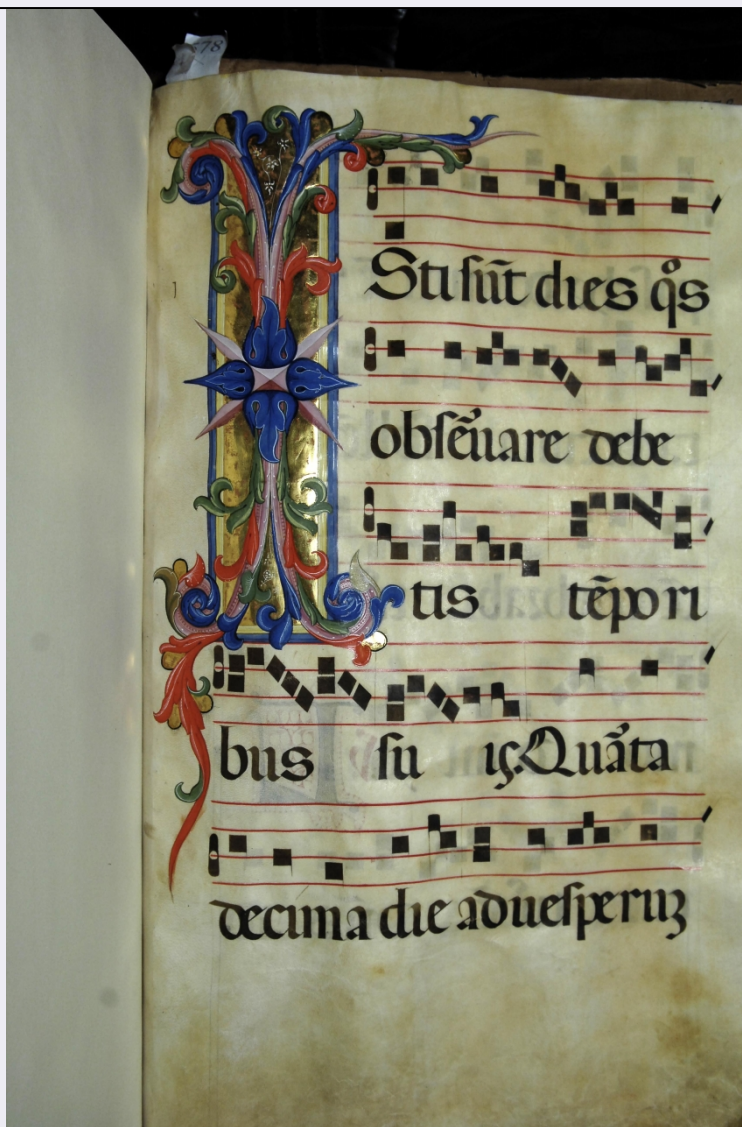 578
1
ISti sūt dies q̊s
obſēuare debe
tis tēpori
bus su iſ. Quāta
decima die aduesperuʒ